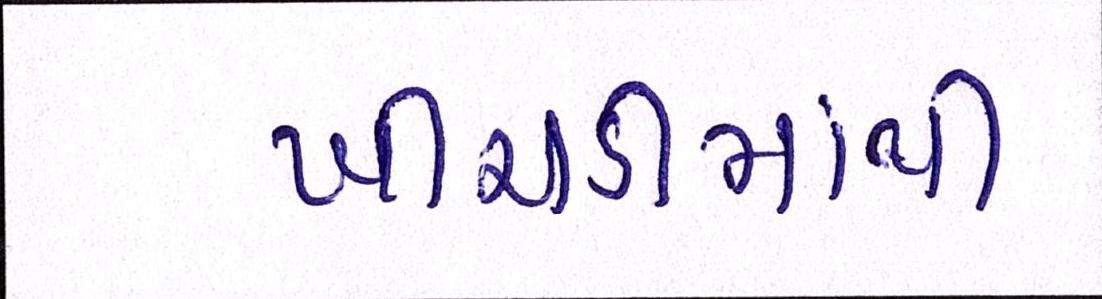 ખીચડીમાંથી